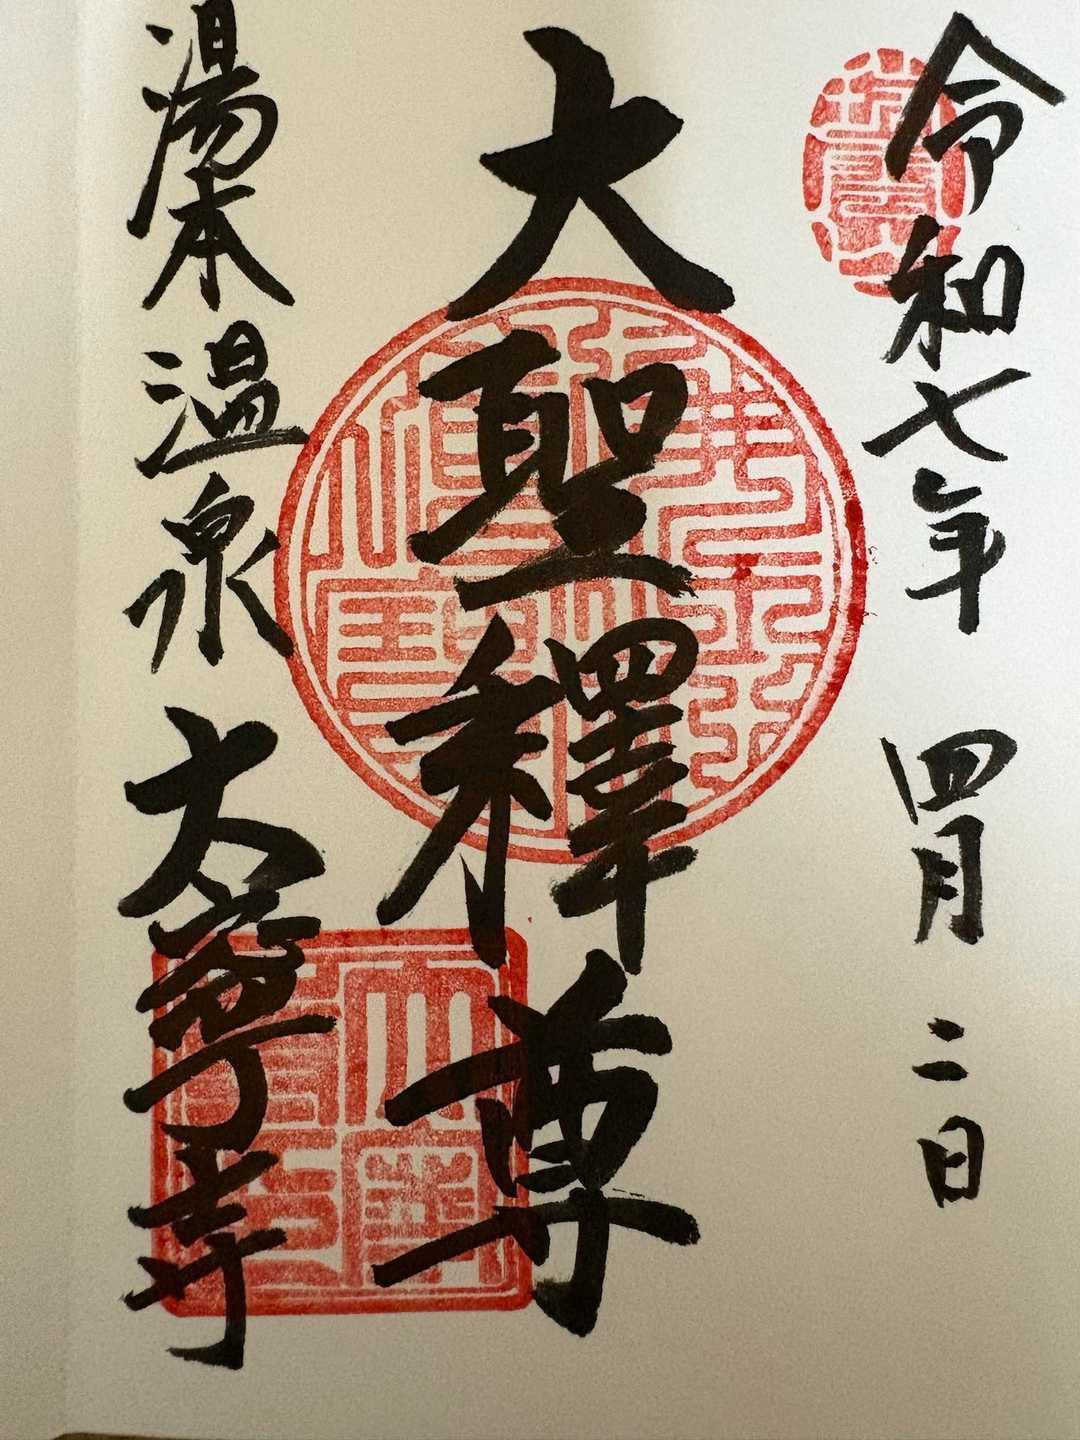 令和七年 四月 二日
大聖釋尊
湯本温泉 大寧寺